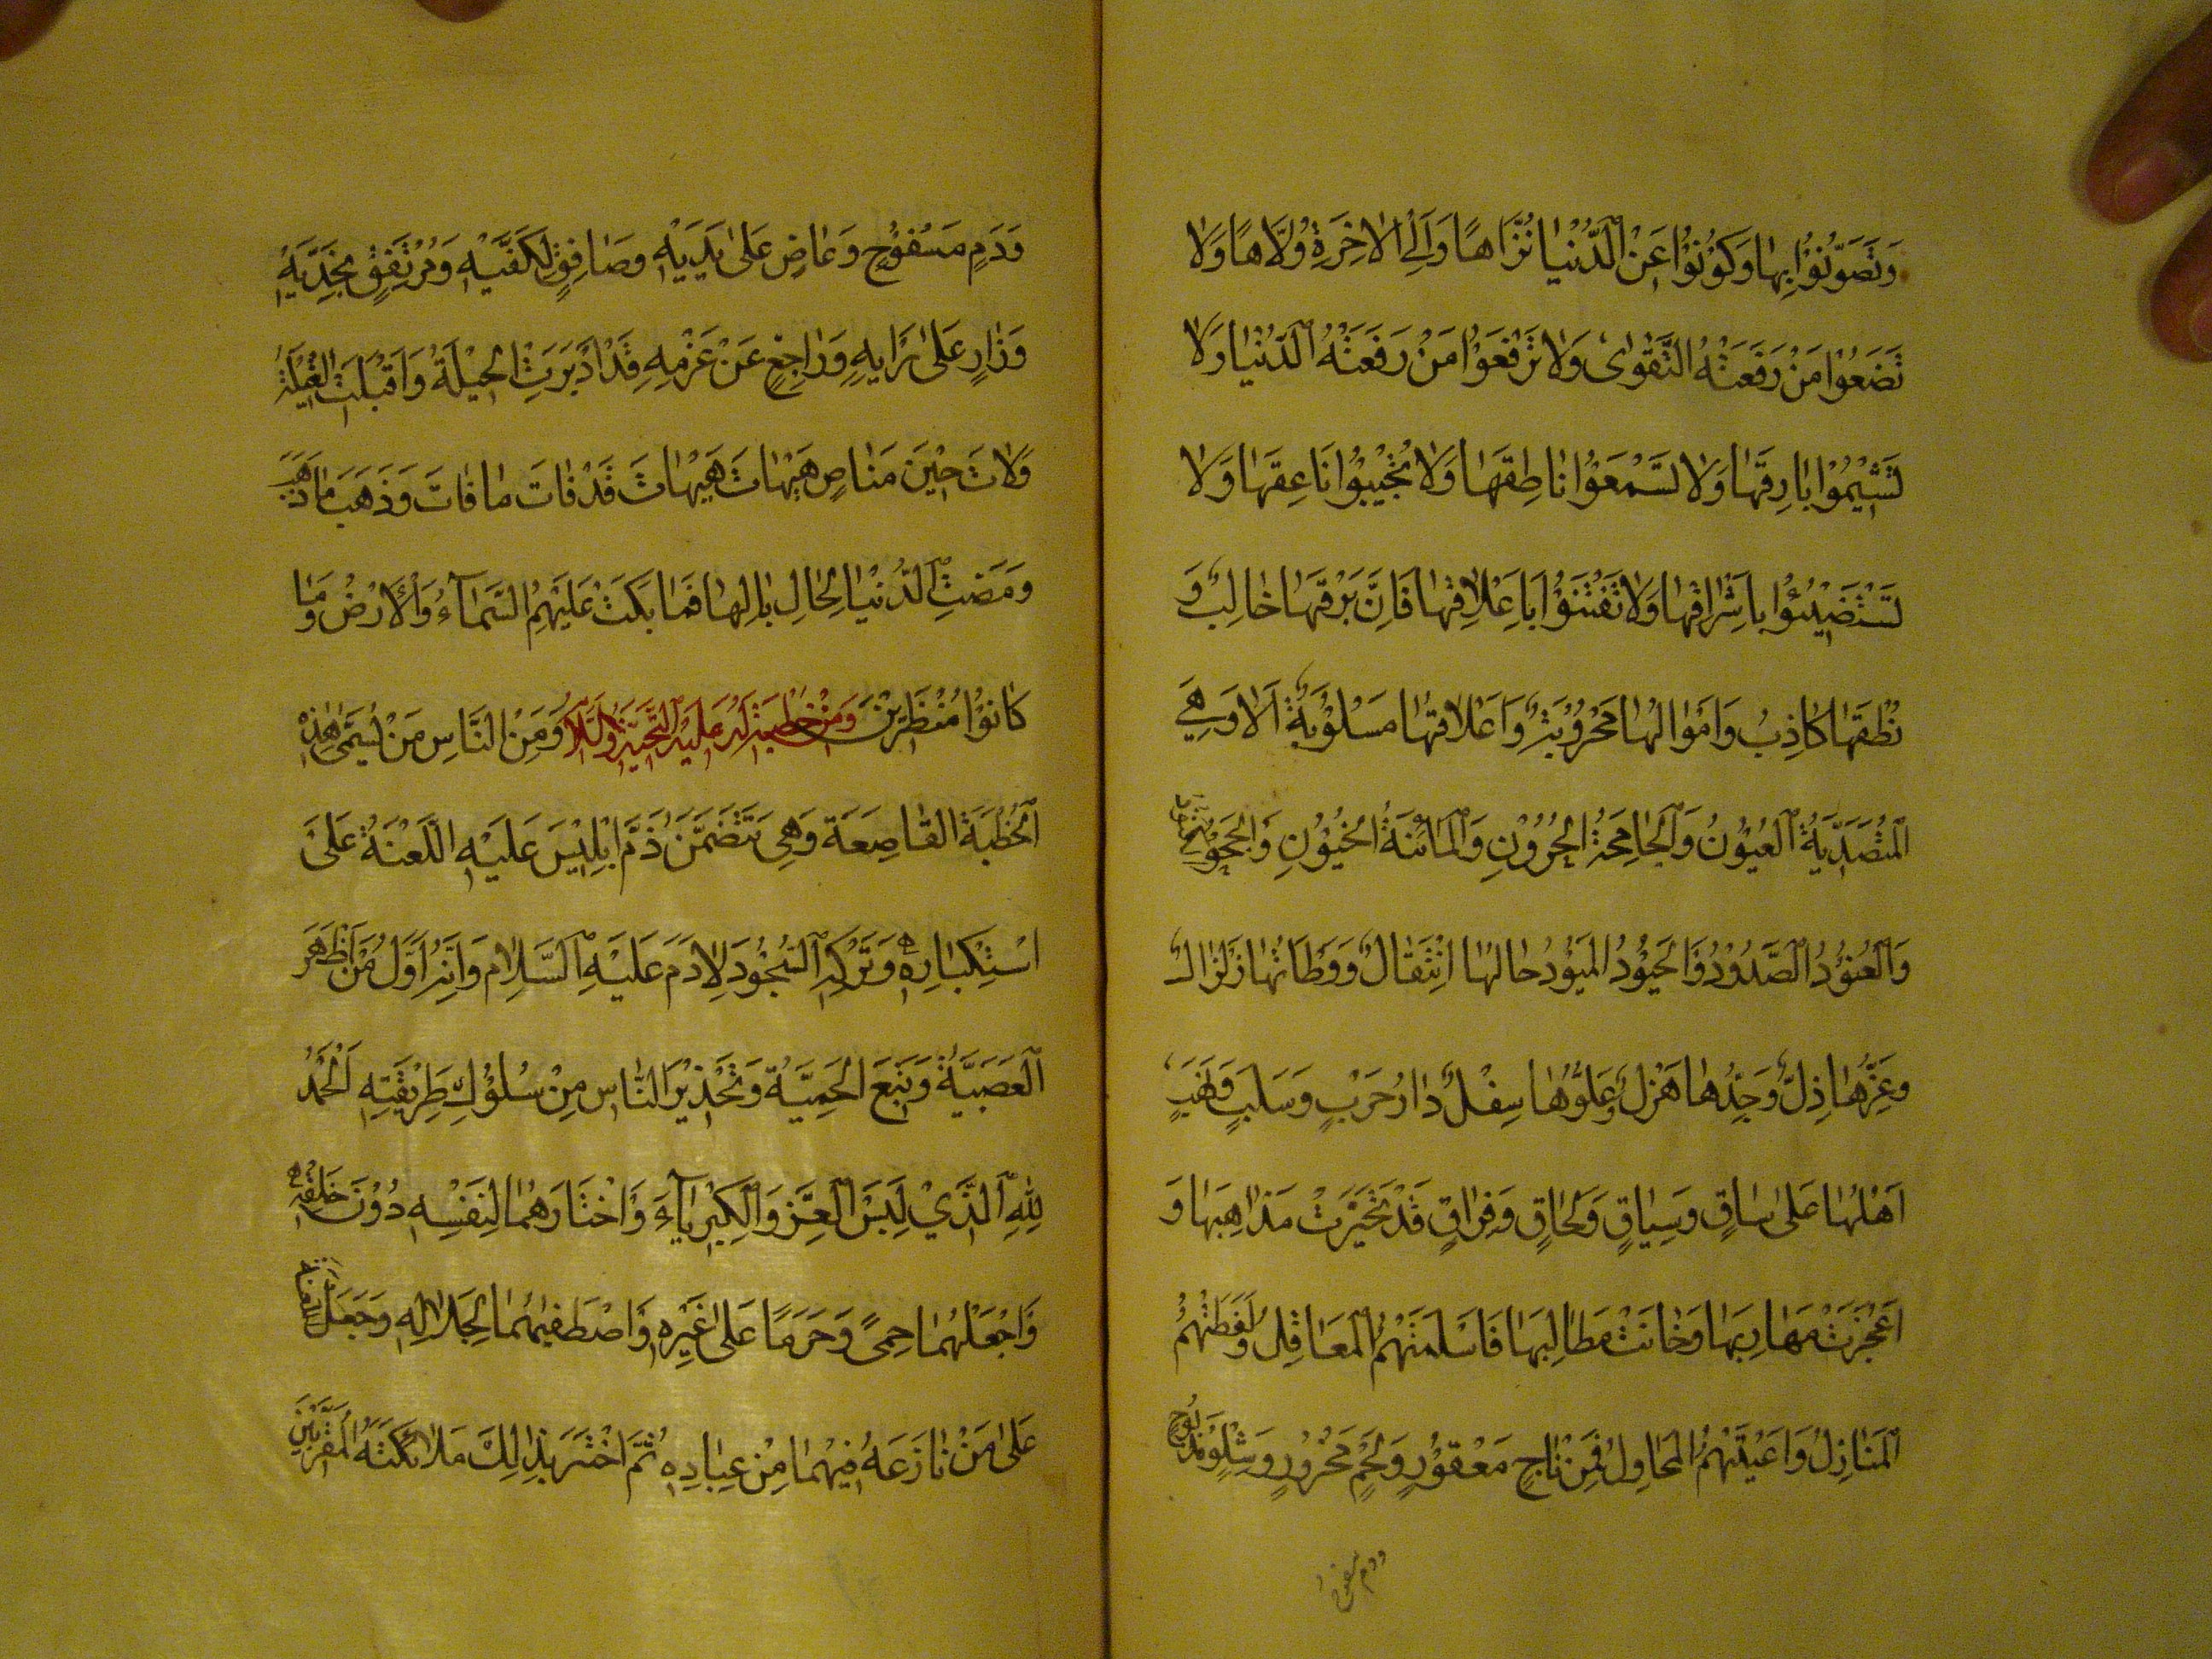 وَتَصَوَّنُوْا بِهَا وَكُوْنُوْا عَنْ الدُّنْيَا نُزَّاهًا وَاِلَى الْاٰخِرَةِ وُلَّاهًا وَلَا
تَضَعُوْا مَنْ رَفَعَتْهُ التَّقْوٰى وَلَا تَرْفَعُوْا مَنْ رَفَعَتْهُ الدُّنْيَا وَلَا
تَشِيْمُوْا بَارِقَهَا وَلَا تَسْمَعُوْا نَاطِقَهَا وَلَا تُجِيْبُوْا نَاعِقَهَا وَلَا
تَسْتَضِيْئُوْا بِاِشْرَاقِهَا وَلَا تُفْتَنُوْا بِاَعْلَاقِهَا فَاِنَّ بَرْقَهَا خَالِبٌ وَ
نُطْقَهَا كَاذِبٌ وَاَمْوَالَهَا مَحْرُوْبَةٌ وَاَعْلَاقَهَا مَسْلُوْبَةٌ اَلَا وَهِيَ
الْمُتَصَدِّيَةُ الْعَيُوْنُ وَالْجَامِحَةُ الْحَرُوْنِ وَالْمَائِنَةُ الْخَيُوْنِ وَالْجَحُوْدُ
وَالْعَنُوْدُ الصَّدُوْدُ وَالْحَيُوْدُ الْمَيُوْدُ حَالُهَا انْتِقَالٌ وَوَطْاَتُهَا زَلْزَالٌ
وَعِزُّهَا ذِلٌّ وَجِدُّهَا هَزْلٌ وَعَلُوُّهَا سِفْلٌ دَارُ حَرْبٍ وَسَلَبٍ وَنَهْبٍ
اَهْلُهَا عَلٰى سَاقٍ وَسِيَاقٍ وَلَحَاقٍ وَفِرَاقٍ قَدْ تَحَيَّرَتْ مَذَاهِبُهَا وَ
اَعْجَزَتْ مَهَارِبُهَا وَخَابَتْ مَطَالِبُهَا فَاَسْلَمَتْهُمُ الْمَعَاقِلُ وَلَفَظَتْهُمُ
الْمَنَازِلُ وَاَعْيَتْهُمُ الْمَحَاوِلُ فَمِنْ نَاجٍ مَعْقُوْرٍ وَلَحْمٍ مَجْزُوْرٍ وَشِلْوٍ مَذْبُوْحٍ
ودم مسفوح
وَدَمٍ مَسْفُوْحٍ وَعَاضٍّ عَلٰى يَدَيْهِ وَصَافِقٍ لِكَفَّيْهِ وَمُرْتَفِقٍ بِخَدَّيْهِ
وَزَارٍ عَلٰى رَاْيِهِ وَرَاجِعٍ عَنْ عَزْمِهِ قَدْ اَدْبَرَتِ الْحِيْلَةُ وَاَقْبَلَتِ الْغِيْلَةُ
وَلَاتَ حِيْنَ مَنَاصٍ هَيْهَاتَ هَيْهَاتَ قَدْ فَاتَ مَا فَاتَ وَذَهَبَ مَا ذَهَبَ
وَمَضَتِ الدُّنْيَا لِحَالِ بَالِهَا فَمَا بَكَتْ عَلَيْهِمُ السَّمَآءُ وَالْاَرْضُ وَمَا
كَانُوْا مُنْظَرِيْنَ وَمِنْ خُطْبَةٍ لَهُ عَلَيْهِ التَّحِيَّةُ وَالثَّنَاءُ وَمِنَ النَّاسِ مَنْ يُسَمِّى هٰذِهِ
الْخُطْبَةَ الْقَاصِعَةَ وَهِيَ تَتَضَمَّنُ ذَمَّ اِبْلِيْسَ عَلَيْهِ اللَّعْنَةُ عَلٰى
اسْتِكْبَارِهِ وَتَرْكِهِ السُّجُوْدَ لِاٰدَمَ عَلَيْهِ السَّلَامُ وَاَنَّهُ اَوَّلُ مَنْ اَظْهَرَ
الْعَصَبِيَّةَ وَتَبِعَ الْحَمِيَّةَ وَتَحْذِيْرَ النَّاسِ مِنْ سُلُوْكِ طَرِيْقَتِهِ اَلْحَمْدُ
لِلّٰهِ الَّذِيْ لَبِسَ الْعِزَّ وَالْكِبْرِيَآءَ وَاخْتَارَهُمَا لِنَفْسِهِ دُوْنَ خَلْقِهِ
وَاجْعَلْهُمَا حِمًى وَحَرَمًا عَلٰى غَيْرِهِ وَاصْطَفٰيهُمَا لِجَلَالِهِ وَجَعَلَ اللَّعْنَةَ
عَلٰى مَنْ نَازَعَهُ فِيْهِمَا مِنْ عِبَادِهِ ثُمَّ اخْتَبَرَ بِذٰلِكَ مَلَائِكَتَهُ الْمُقَرَّبِيْنَ